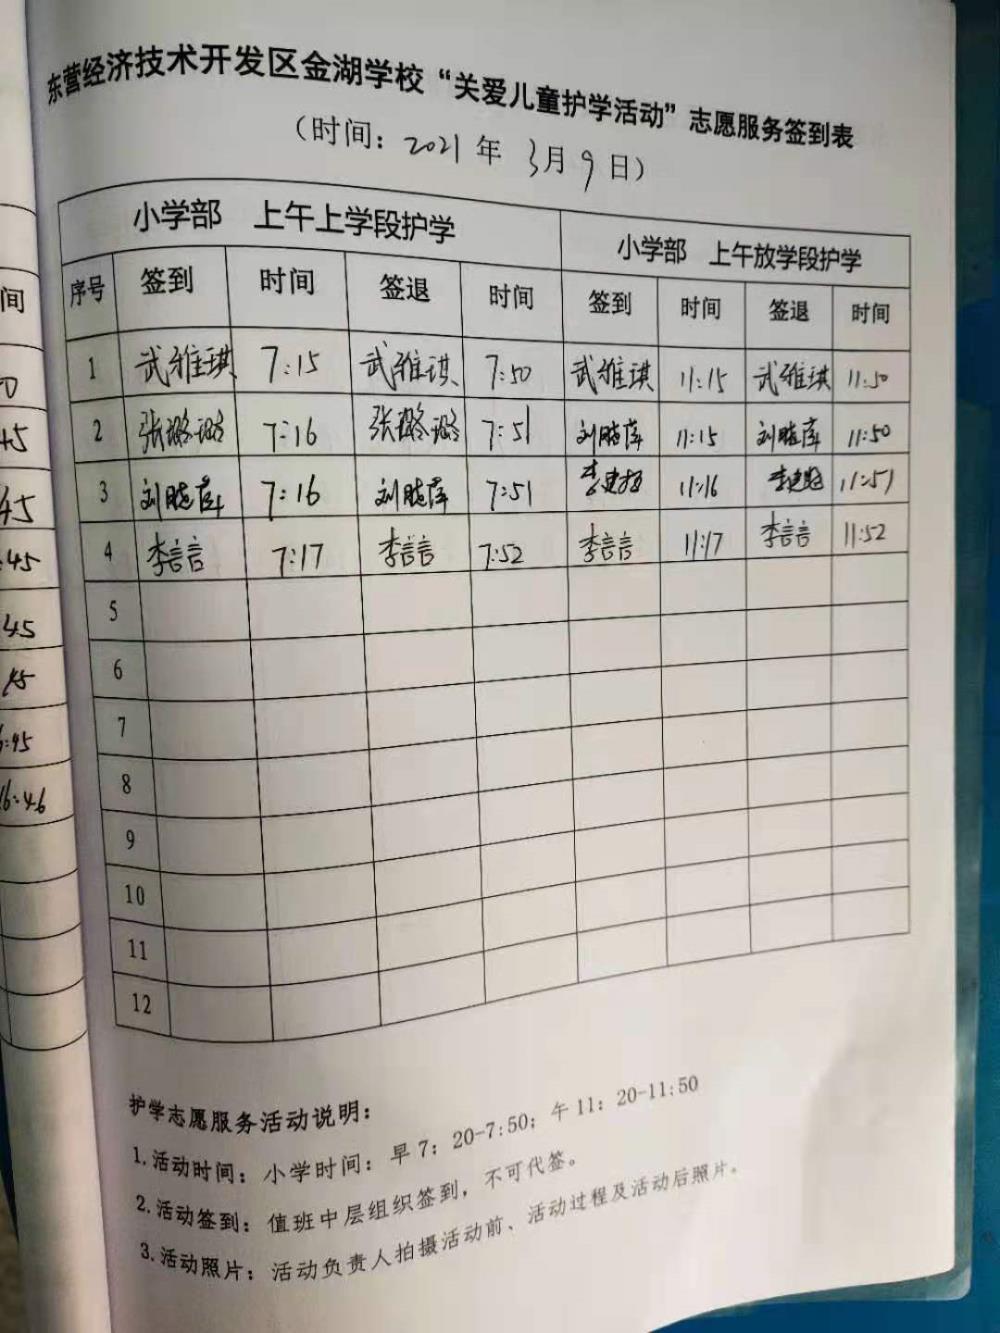 东营经济技术开发区金湖学校“关爱儿童护学活动”志愿服务签到表
（时间：2021年 3月9日）
小学部 上午上学段护学 小学部 上午放学段护学
序号 签到 时间 签退 时间 签到 时间 签退 时间
1 武雅琪 7:15 武雅琪 7:50 武雅琪 11:15 武雅琪 11:50
2 张璐璐 7:16 张璐璐 7:51 刘晓萍 11:15 刘晓萍 11:50
3 刘晓萍 7:16 刘晓萍 7:51 李建 11:16 李建 11:51
4 李言言 7:17 李言言 7:52 李言言 11:17 李言言 11:52
5
6
7
8
9
10
11
12
护学志愿服务活动说明：
1.活动时间：小学时间：早7：20-7:50；午11：20-11:50
2.活动签到：值班中层组织签到，不可代签。
3.活动照片：活动负责人拍摄活动前、活动过程及活动后照片。
间
45
45
:45
45
45
6:45
16:46